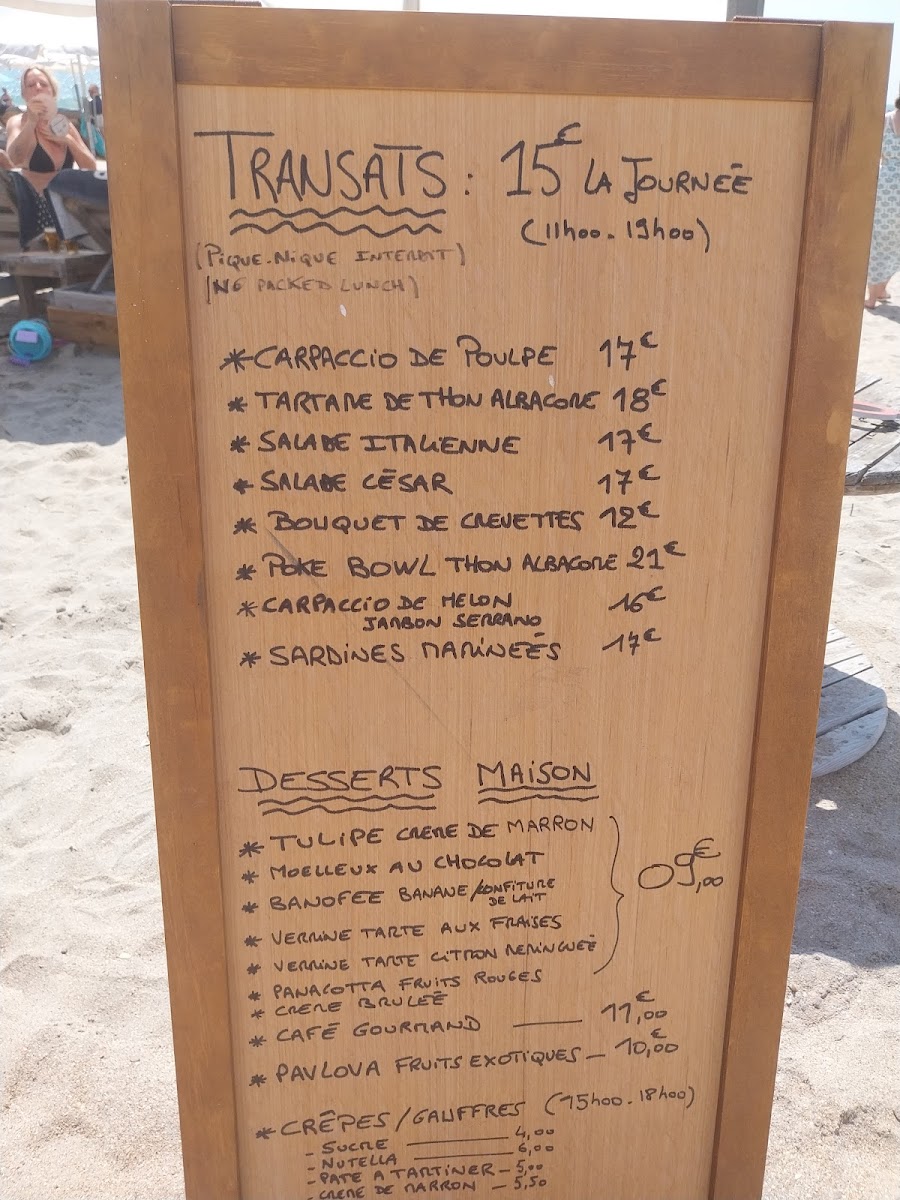 TRANSATS : 15€ LA JOURNEÉ
(11h00 - 19h00)
(PIQUE-NIQUE INTERDIT)
(NO PACKED LUNCH)
* CARPACCIO DE POULPE 17€
* TARTARE DE THON ALBACORE 18€
* SALADE ITALIENNE 17€
* SALADE CÉSAR 17€
* BOUQUET DE CREVETTES 12€
* POKE BOWL THON ALBACORE 21€
* CARPACCIO DE MELON 16€
JAMBON SERRANO
* SARDINES MARINEÉS 17€
DESSERTS MAISON
* TULIPE CREME DE MARRON
* MOELLEUX AU CHOCOLAT
* BANOFEE BANANE/CONFITURE
DE LAIT
09€,00
* VERRINE TARTE AUX FRAISES
* VERRINE TARTE CITRON MERINGUEÉ
* PANACOTTA FRUITS ROUGES
* CREME BRULEÉ
* CAFÉ GOURMAND — 11€,00
* PAVLOVA FRUITS EXOTIQUES — 10€,00
* CRÊPES/GAUFFRES (15h00 - 18h00)
- SUCRE — 4,00
- NUTELLA — 6,00
- PATE A TARTINER — 5,00
- CREME DE MARRON — 5,50